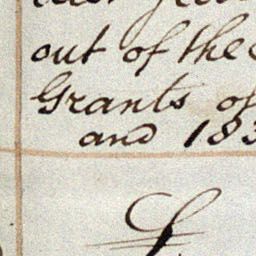 out of the
Grants of
and 183
£